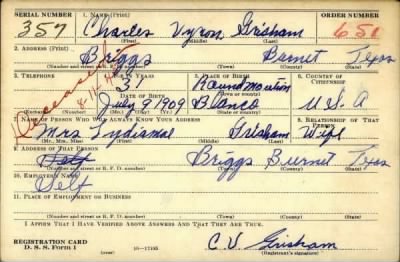 SERIAL NUMBER 1. NAME (Print) ORDER NUMBER
357 Charles Vyron Grisham 651
(First) (Middle) (Last)
2. ADDRESS (Print)
Briggs Burnet Texas
(Number and street or R. F. D. number) (Town) (County) (State)
3. TELEPHONE 4. AGE IN YEARS 5. PLACE OF BIRTH 6. COUNTRY OF CITIZENSHIP
Deceased 31 Round mountion
DATE OF BIRTH (Town or county)
July 9 1909 Blanco U.S.A
(Exchange) (Number) (Mo.) (Day) (Yr.) (State or country)
7. NAME OF PERSON WHO WILL ALWAYS KNOW YOUR ADDRESS 8. RELATIONSHIP OF THAT PERSON
Mrs Lydiamae Grisham Wife
(Mr., Mrs., Miss) (First) (Middle) (Last)
9. ADDRESS OF THAT PERSON
Self Briggs Burnet Texas
(Number and street or R. F. D. number) (Town) (County) (State)
10. EMPLOYER'S NAME
Self
11. PLACE OF EMPLOYMENT OR BUSINESS
(Number and street or R. F. D. number) (Town) (County) (State)
I AFFIRM THAT I HAVE VERIFIED ABOVE ANSWERS AND THAT THEY ARE TRUE.
REGISTRATION CARD
D. S. S. Form 1 16—17105 C.V. Grisham
(Registrant's signature)